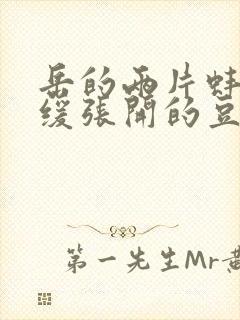 岳的两片蚌
缓张開的豆
第一先生Mr黄